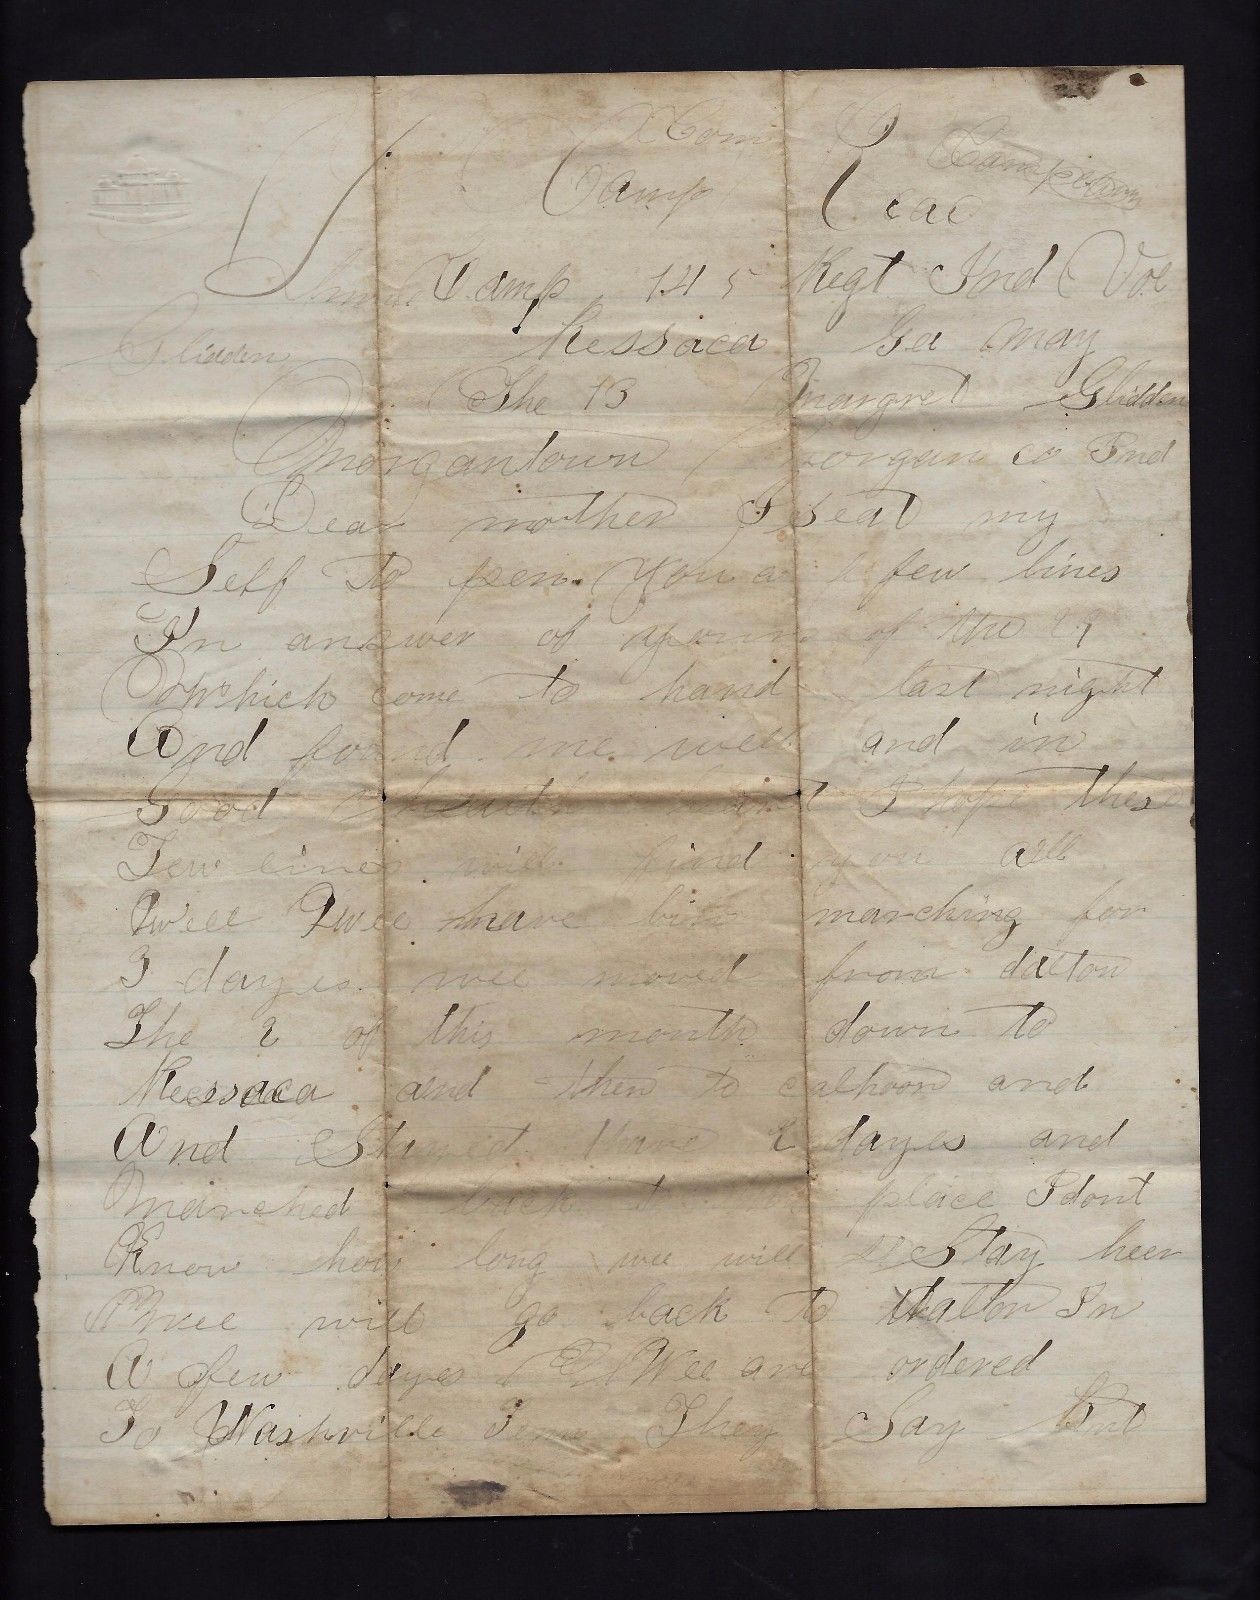 Com
Camp
Camp 145 Regt Ind Vol
Glidden Ressaca Ga May
The 13 Margret Glidden
Morgantown Morgan co Ind
Dear mother I seat my
Self to pen you a few lines
In answer of yours of the 29
Which come to hand last night
And found me well and in
Good health and I hope these
Few lines will find you all
Well Wee have bin marching for
3 dayes wee moved from dalton
The 2 of this month down to
Ressaca and then to calhoon and
And Stayed thare 2 dayes and
Marched back to this place I dont
Know how long wee will Stay heer
Wee will go back to dalton In
A few dayes Wee are ordered
To Nashville Tenn They Say But